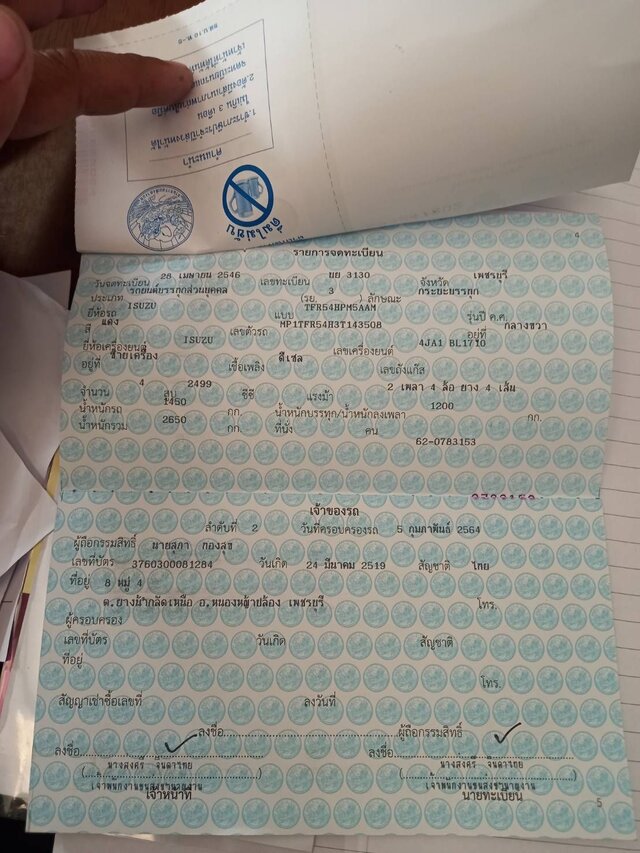 คำแนะนำ
1.ชำระภาษีประจำปีล่วงหน้าได้
ไม่เกิน 3 เดือน
เมาไม่ขับ
รายการจดทะเบียน
วันจดทะเบียน 28 เมษายน 2546 เลขทะเบียน นย 3130 จังหวัด เพชรบุรี
ประเภท รถยนต์บรรทุกส่วนบุคคล (รย. 3 ) ลักษณะ กระบะบรรทุก
ยี่ห้อรถ ISUZU แบบ TFR54HPM5AAM รุ่นปี ค.ศ.
สี แดง เลขตัวรถ MP1TFR54H3T143508 อยู่ที่ กลางขวา
ยี่ห้อเครื่องยนต์ ISUZU เลขเครื่องยนต์ 4JA1 BL1710
อยู่ที่ ซ้ายเครื่อง เชื้อเพลิง ดีเซล เลขถังแก๊ส
จำนวน 4 สูบ 2499 ซีซี แรงม้า 2 เพลา 4 ล้อ ยาง 4 เส้น
น้ำหนักรถ 1450 กก. น้ำหนักบรรทุก/น้ำหนักลงเพลา 1200 กก.
น้ำหนักรวม 2650 กก. ที่นั่ง คน
62-0783153
เจ้าของรถ
ลำดับที่ 2 วันที่ครอบครองรถ 5 กุมภาพันธ์ 2564
ผู้ถือกรรมสิทธิ์ นายสุภา ทองสุข
เลขที่บัตร 3760300081284 วันเกิด 24 มีนาคม 2519 สัญชาติ ไทย
ที่อยู่ 8 หมู่ 4
ต.ยางน้ำกลัดเหนือ อ.หนองหญ้าปล้อง เพชรบุรี โทร.
ผู้ครอบครอง
เลขที่บัตร วันเกิด สัญชาติ
ที่อยู่
โทร.
สัญญาเช่าซื้อเลขที่ ลงวันที่
ลงชื่อ ผู้ถือกรรมสิทธิ์
ลงชื่อ ลงชื่อ
เจ้าหน้าที่ นายทะเบียน
5